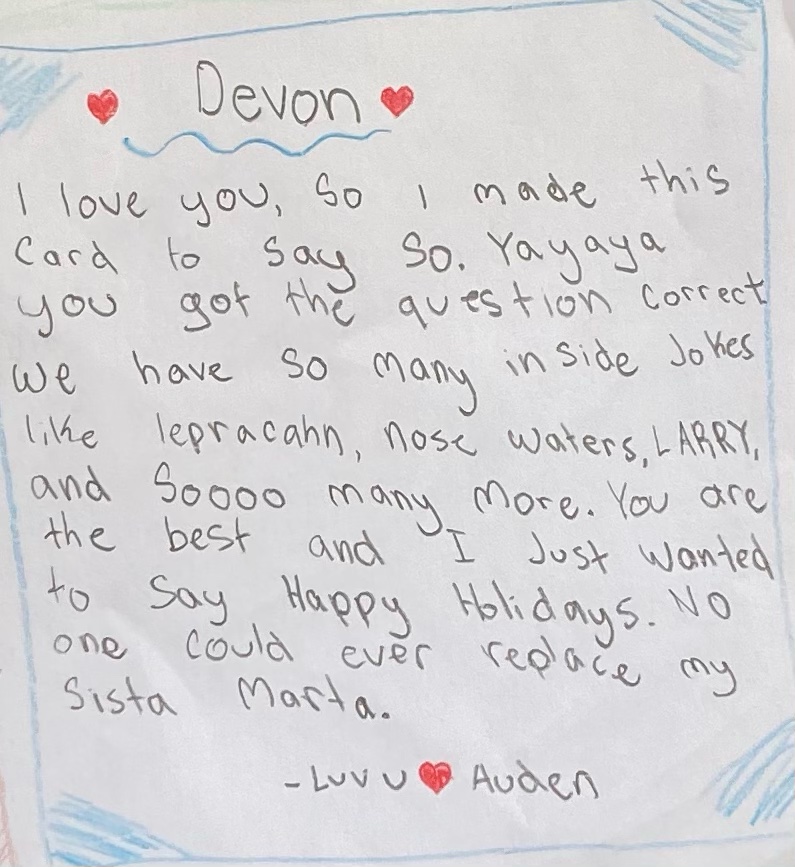 Devon
I love you, So I made this
Card to Say So. Yayaya
you got the question Correct
We have So many inside Jokes
like lepracahn, nose waters, LARRY,
and Soooo many More. You are
the best and I Just wanted
to Say Happy Holidays. No
one could ever replace my
Sista Marta.
-Luv U ❤ Auden